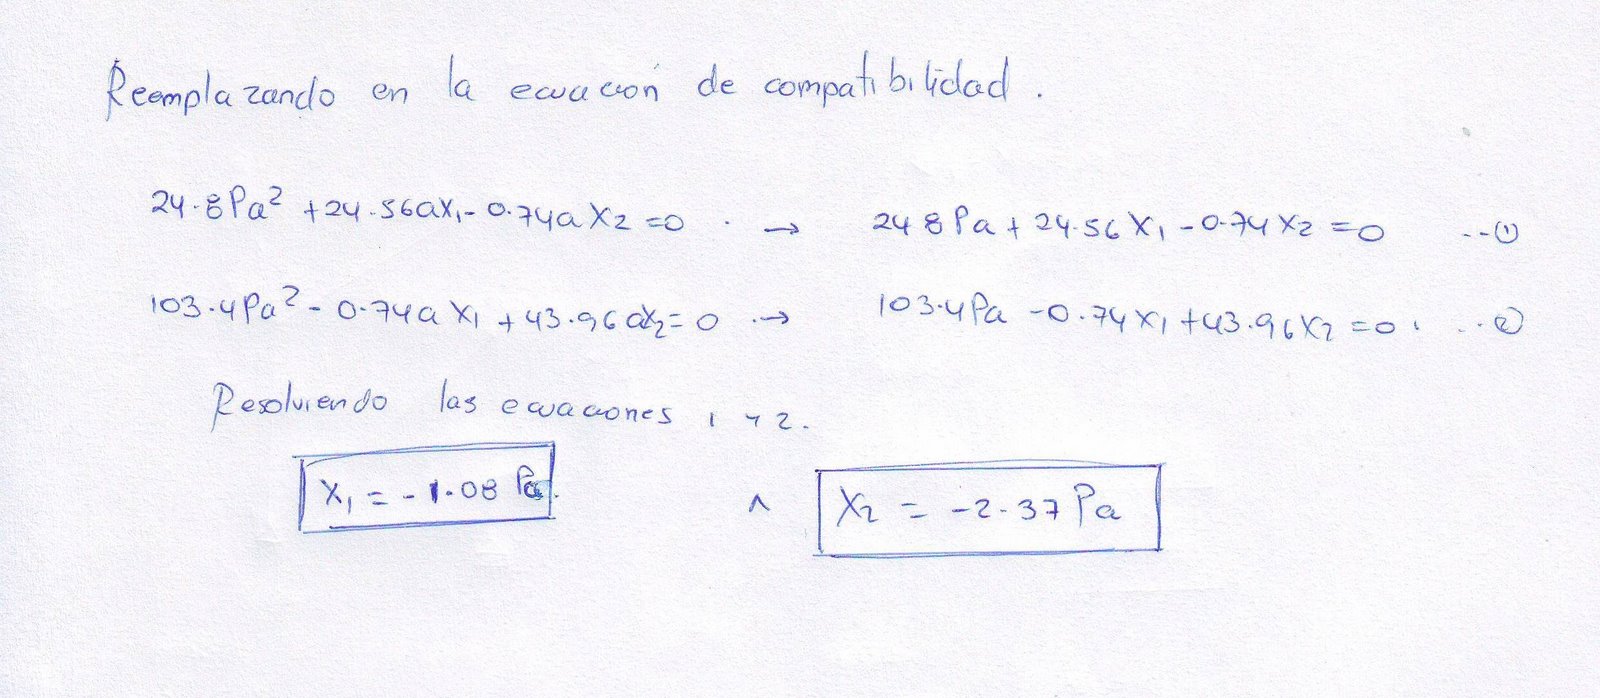 Reemplazando en la ecuación de compatibilidad.
24.8Pa² + 24.56aX₁ - 0.74aX₂ = 0 . → 24 8Pa + 24.56X₁ - 0.74X₂ = 0 ..①
103.4Pa² - 0.74aX₁ + 43.96aX₂ = 0 .→ 103.4Pa - 0.74X₁ + 43.96X₂ = 0 . ...②
Resolviendo las ecuaciones 1 y 2.
X₁ = -1.08 Pa. ^ X₂ = -2.37Pa